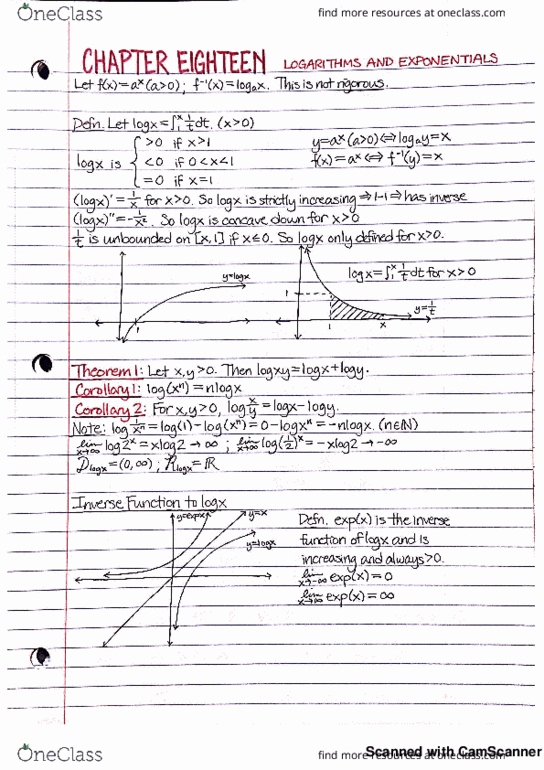 OneClass
find more resources at oneclass.com
CHAPTER EIGHTEEN LOGARITHMS AND EXPONENTIALS
Let f(x)=aˣ(a>0); f⁻¹(x)=logₐx. This is not rigorous.
Defn. Let logx=∫₁ˣ 1/t dt. (x>0)
logx is { >0 if x>1
<0 if 0<x<1
=0 if x=1
y=aˣ(a>0)⇔logₐy=x
f(x)=aˣ⇔f⁻¹(y)=x
(logx)'=1/x for x>0. So logx is strictly increasing ⇒ 1-1 ⇒ has inverse
(logx)''=-1/x². So logx is concave down for x>0
1/t is unbounded on [x,1] if x≤0. So logx only defined for x>0.
y=logx
1
logx=∫₁ˣ 1/t dt for x>0
1
y=1/t
1 x
Theorem 1: Let x,y>0. Then logxy=logx+logy.
Corollary 1: log(xⁿ)=nlogx
Corollary 2: For x,y>0, log x/y=logx-logy.
Note: log 1/xⁿ=log(1)-log(xⁿ)=0-logxⁿ=-nlogx. (n∈ℕ)
lim x→∞ log2ˣ=xlog2→∞ ; lim x→∞ log(1/2)ˣ=-xlog2→-∞
D logx=(0,∞) ; R logx=ℝ
Inverse Function to logx
y=expx
y=x
y=logx
Defn. exp(x) is the inverse
function of logx and is
increasing and always >0.
lim x→-∞ exp(x)=0
lim x→∞ exp(x)=∞
OneClass
find more resources at oneclass.com
Scanned with CamScanner